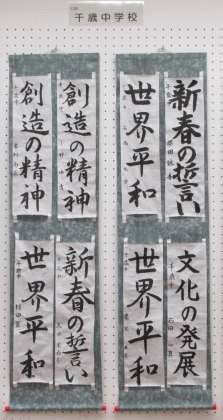 千歳中学校
新春の誓い
世界平和
文化の発展
世界平和
創造の精神
創造の精神
新春の誓い
世界平和